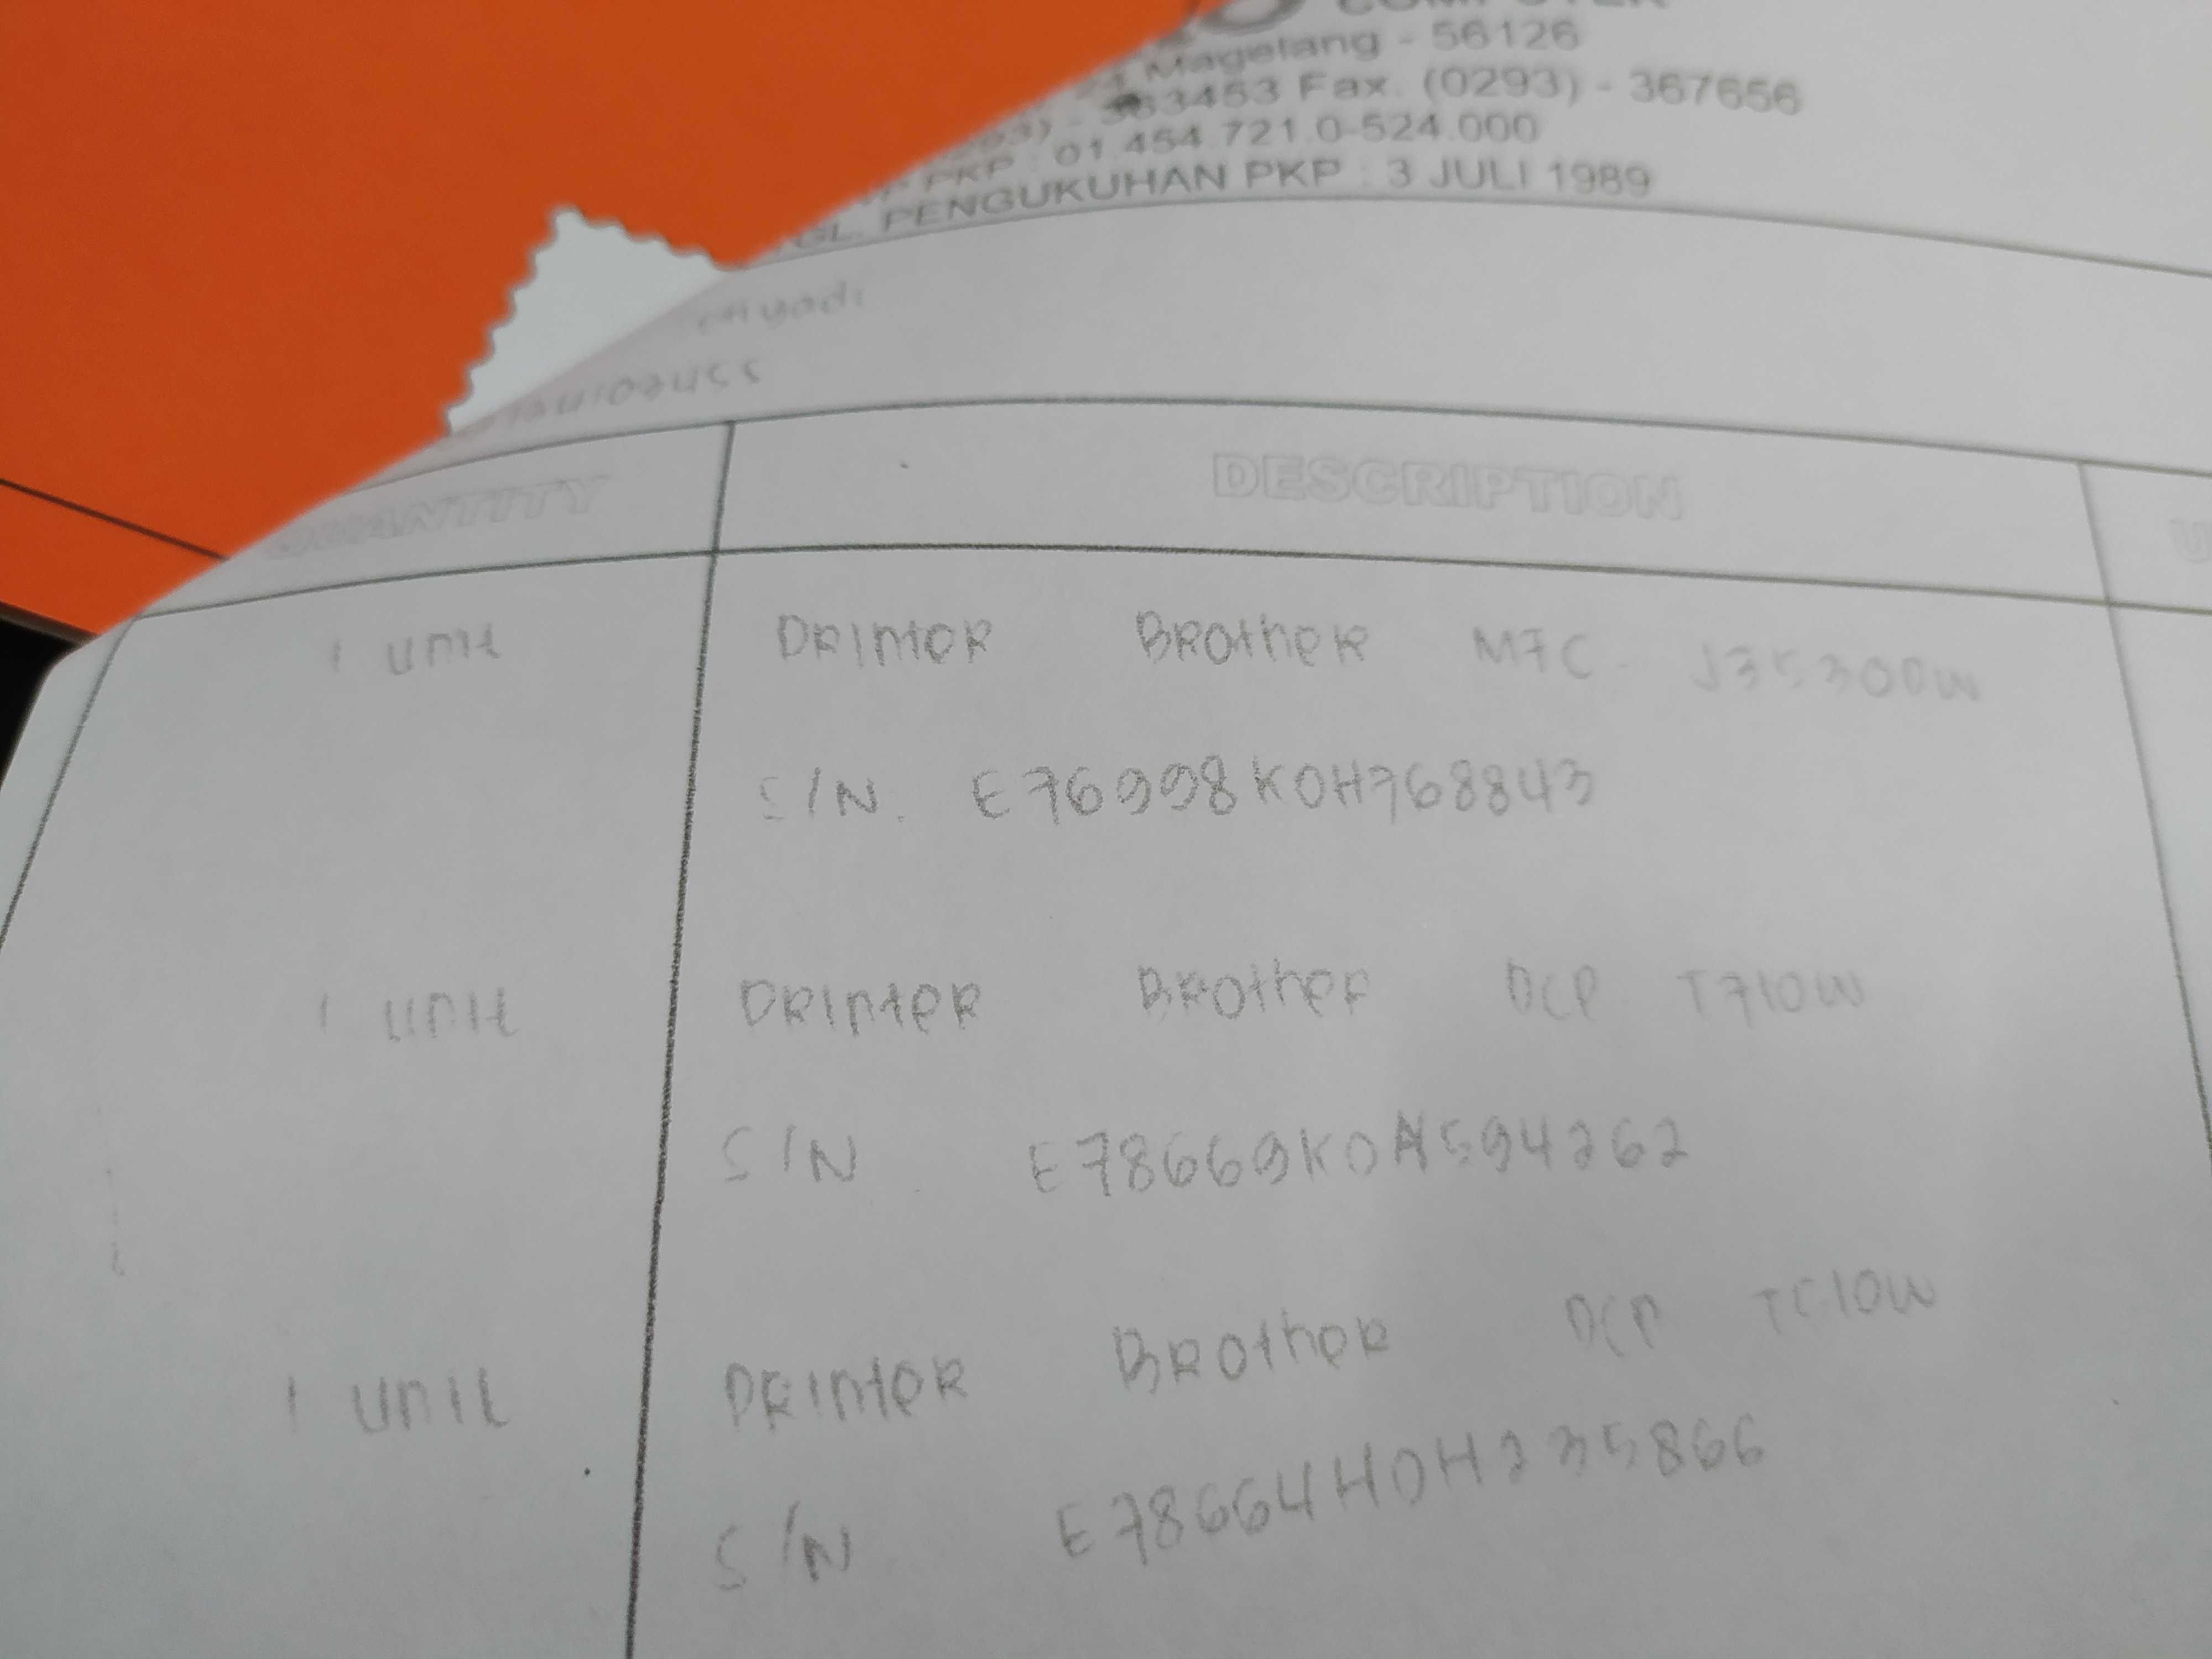 COMPUTER
Magelang - 56126
363453 Fax. (0293) - 367656
PKP : 01.454.721.0-524.000
GL. PENGUKUHAN PKP : 3 JULI 1989
QUANTITY DESCRIPTION
1 unit Printer Brother MFC - J3530DW
S/N. E76998K0H768843
1 unit Printer Brother DCP T710W
S/N E78669K0N594262
1 unit Printer Brother DCP T510W
S/N E78664H0H235866